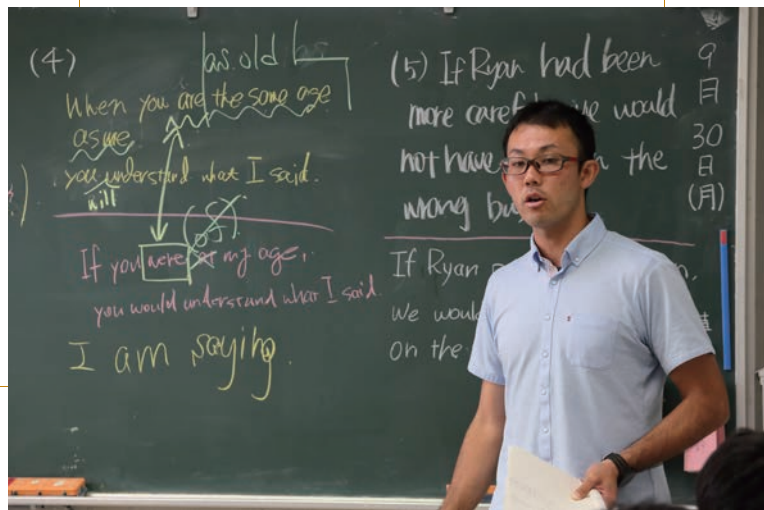 (4)
as old as
When you are the same age
as me,
you understand what I said.
will
(of)
If you were my age,
you would understand what I said.
I am saying.
(5) If Ryan had been
more careful, we would
not have the
wrong bus
If Ryan
We would
on the
9
月
30
日
(月)